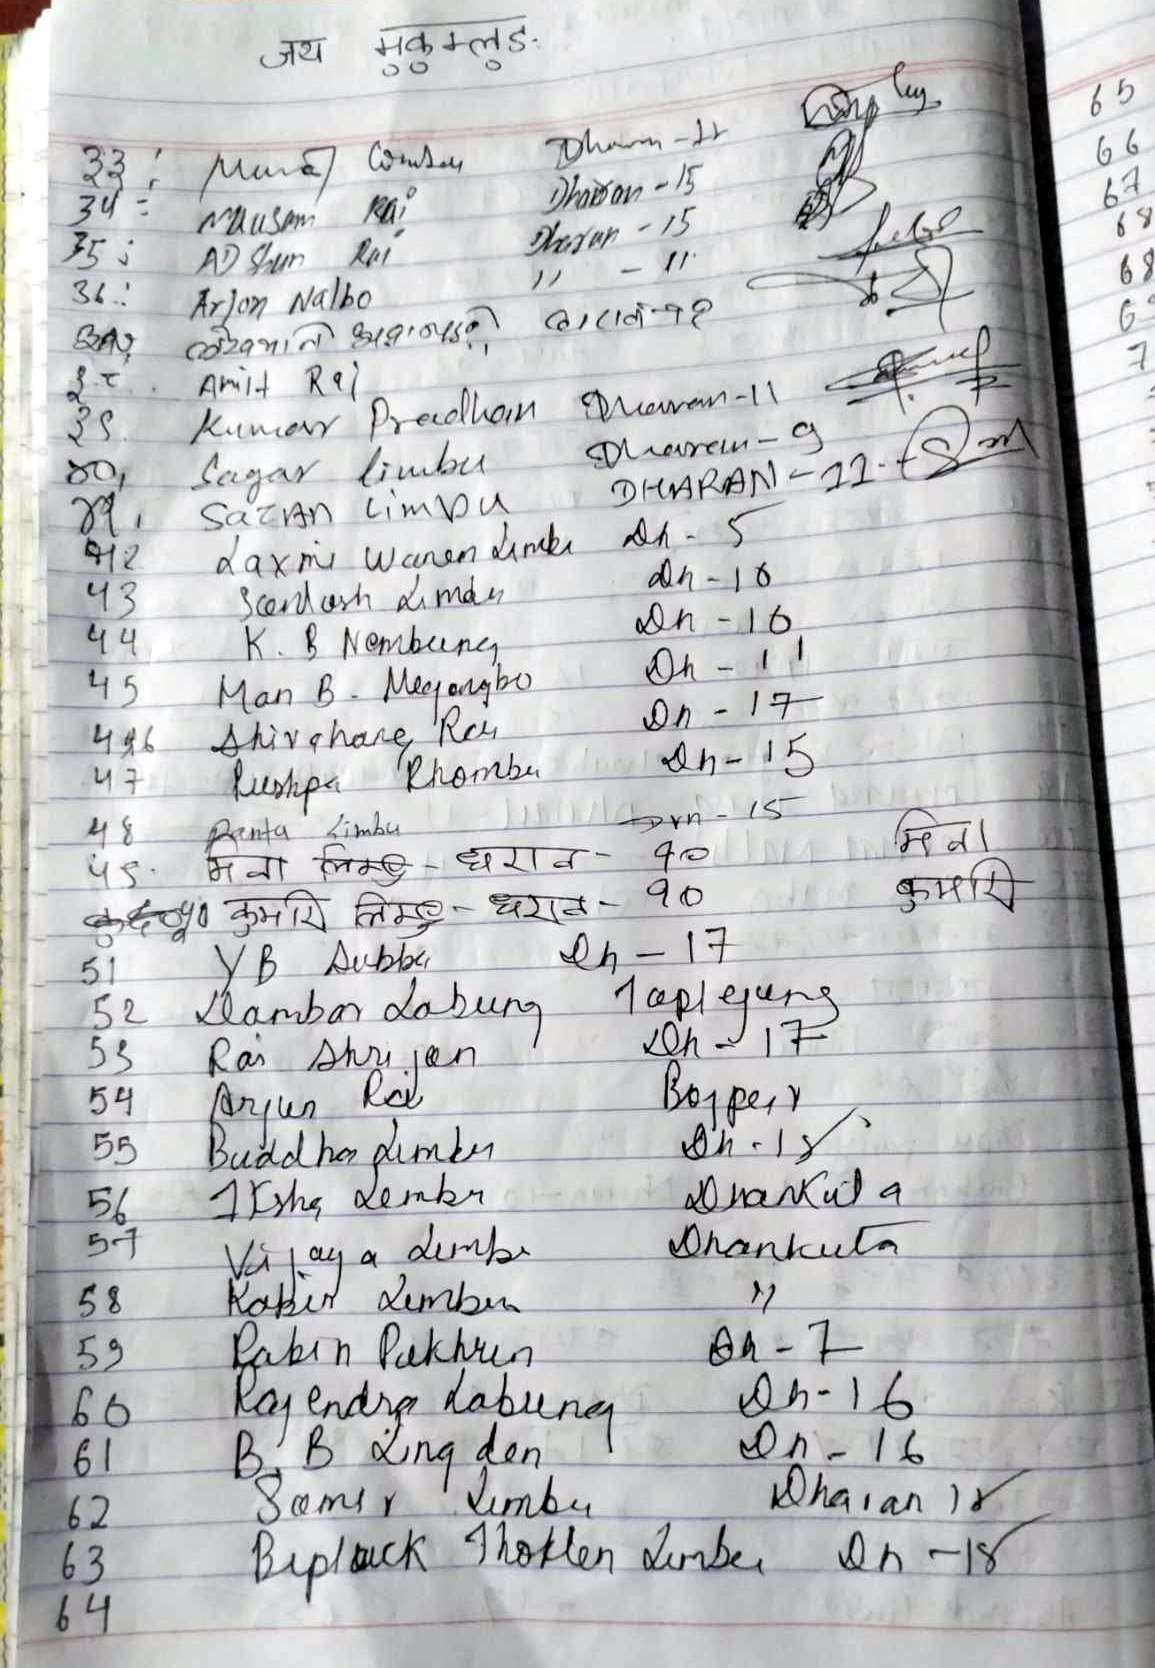 जय मुकुम्लुङ
33: Dharan-12
34: Mausam Rai Dharan-15
35: Rai Dharan-15
36: Arjon Nalbo " - 11
३८. Amit Rai
39. Kumar Pradhan Dharan-11
४०, Sagar Limbu Dharan-9
४१, Limbu DHARAN-11
42 Laxmi Waren Limbu Dh - 5
43 Santosh Limbu Dh - 16
44 K. B Nembung Dh - 16
45 Man B. Megangbo Dh - 11
46 Rai Dh - 17
47 Pushpa Rhombu Dh - 15
48 Limbu Dhn - 15
49. मिना लिम्बु - धरान - १० मिना
५० कुमारि लिम्बु - धरान - १० कुमारि
51 YB Subba Dh - 17
52 Dambar Labung Taplejung
53 Rai Shrijan Dh - 17
54 Arjun Rai Bojpur
55 Buddha Limbu Dh - 18
56 Limbu Dhankuta
57 Vijaya Limbu Dhankuta
58 Kabir Limbu "
59 Rabin Pakhrin Dh - 7
60 Rajendra Labung Dh - 16
61 B. B Lingden Dh - 16
62 Samir Limbu Dharan 18
63 Thoklen Limbu Dh - 18
64
65
66
67
68
68
7